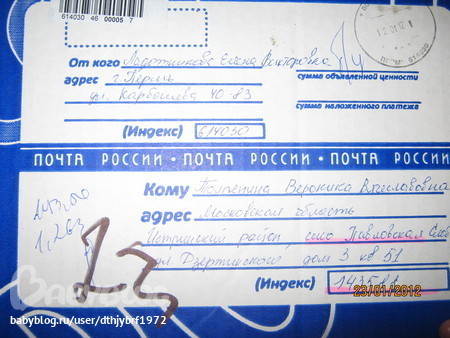 614030 46 00005 7
От кого Ладотникова Елена Викторовна
адрес г. Пермь
ул. Карбышева 40-83
сумма объявленной ценности
сумма наложенного платежа
(Индекс) 614030
ПОЧТА РОССИИ • ПОЧТА РОССИИ • ПОЧТА РОССИИ
Кому Вероника
адрес Московская область
Истринский район, село Павловская Слоб
ул Дзержинского дом 3 кв 51
(Индекс) 143581
1,263
13
23/01/2012
BABYBLOG
babyblog.ru/user/dthjybrf1972